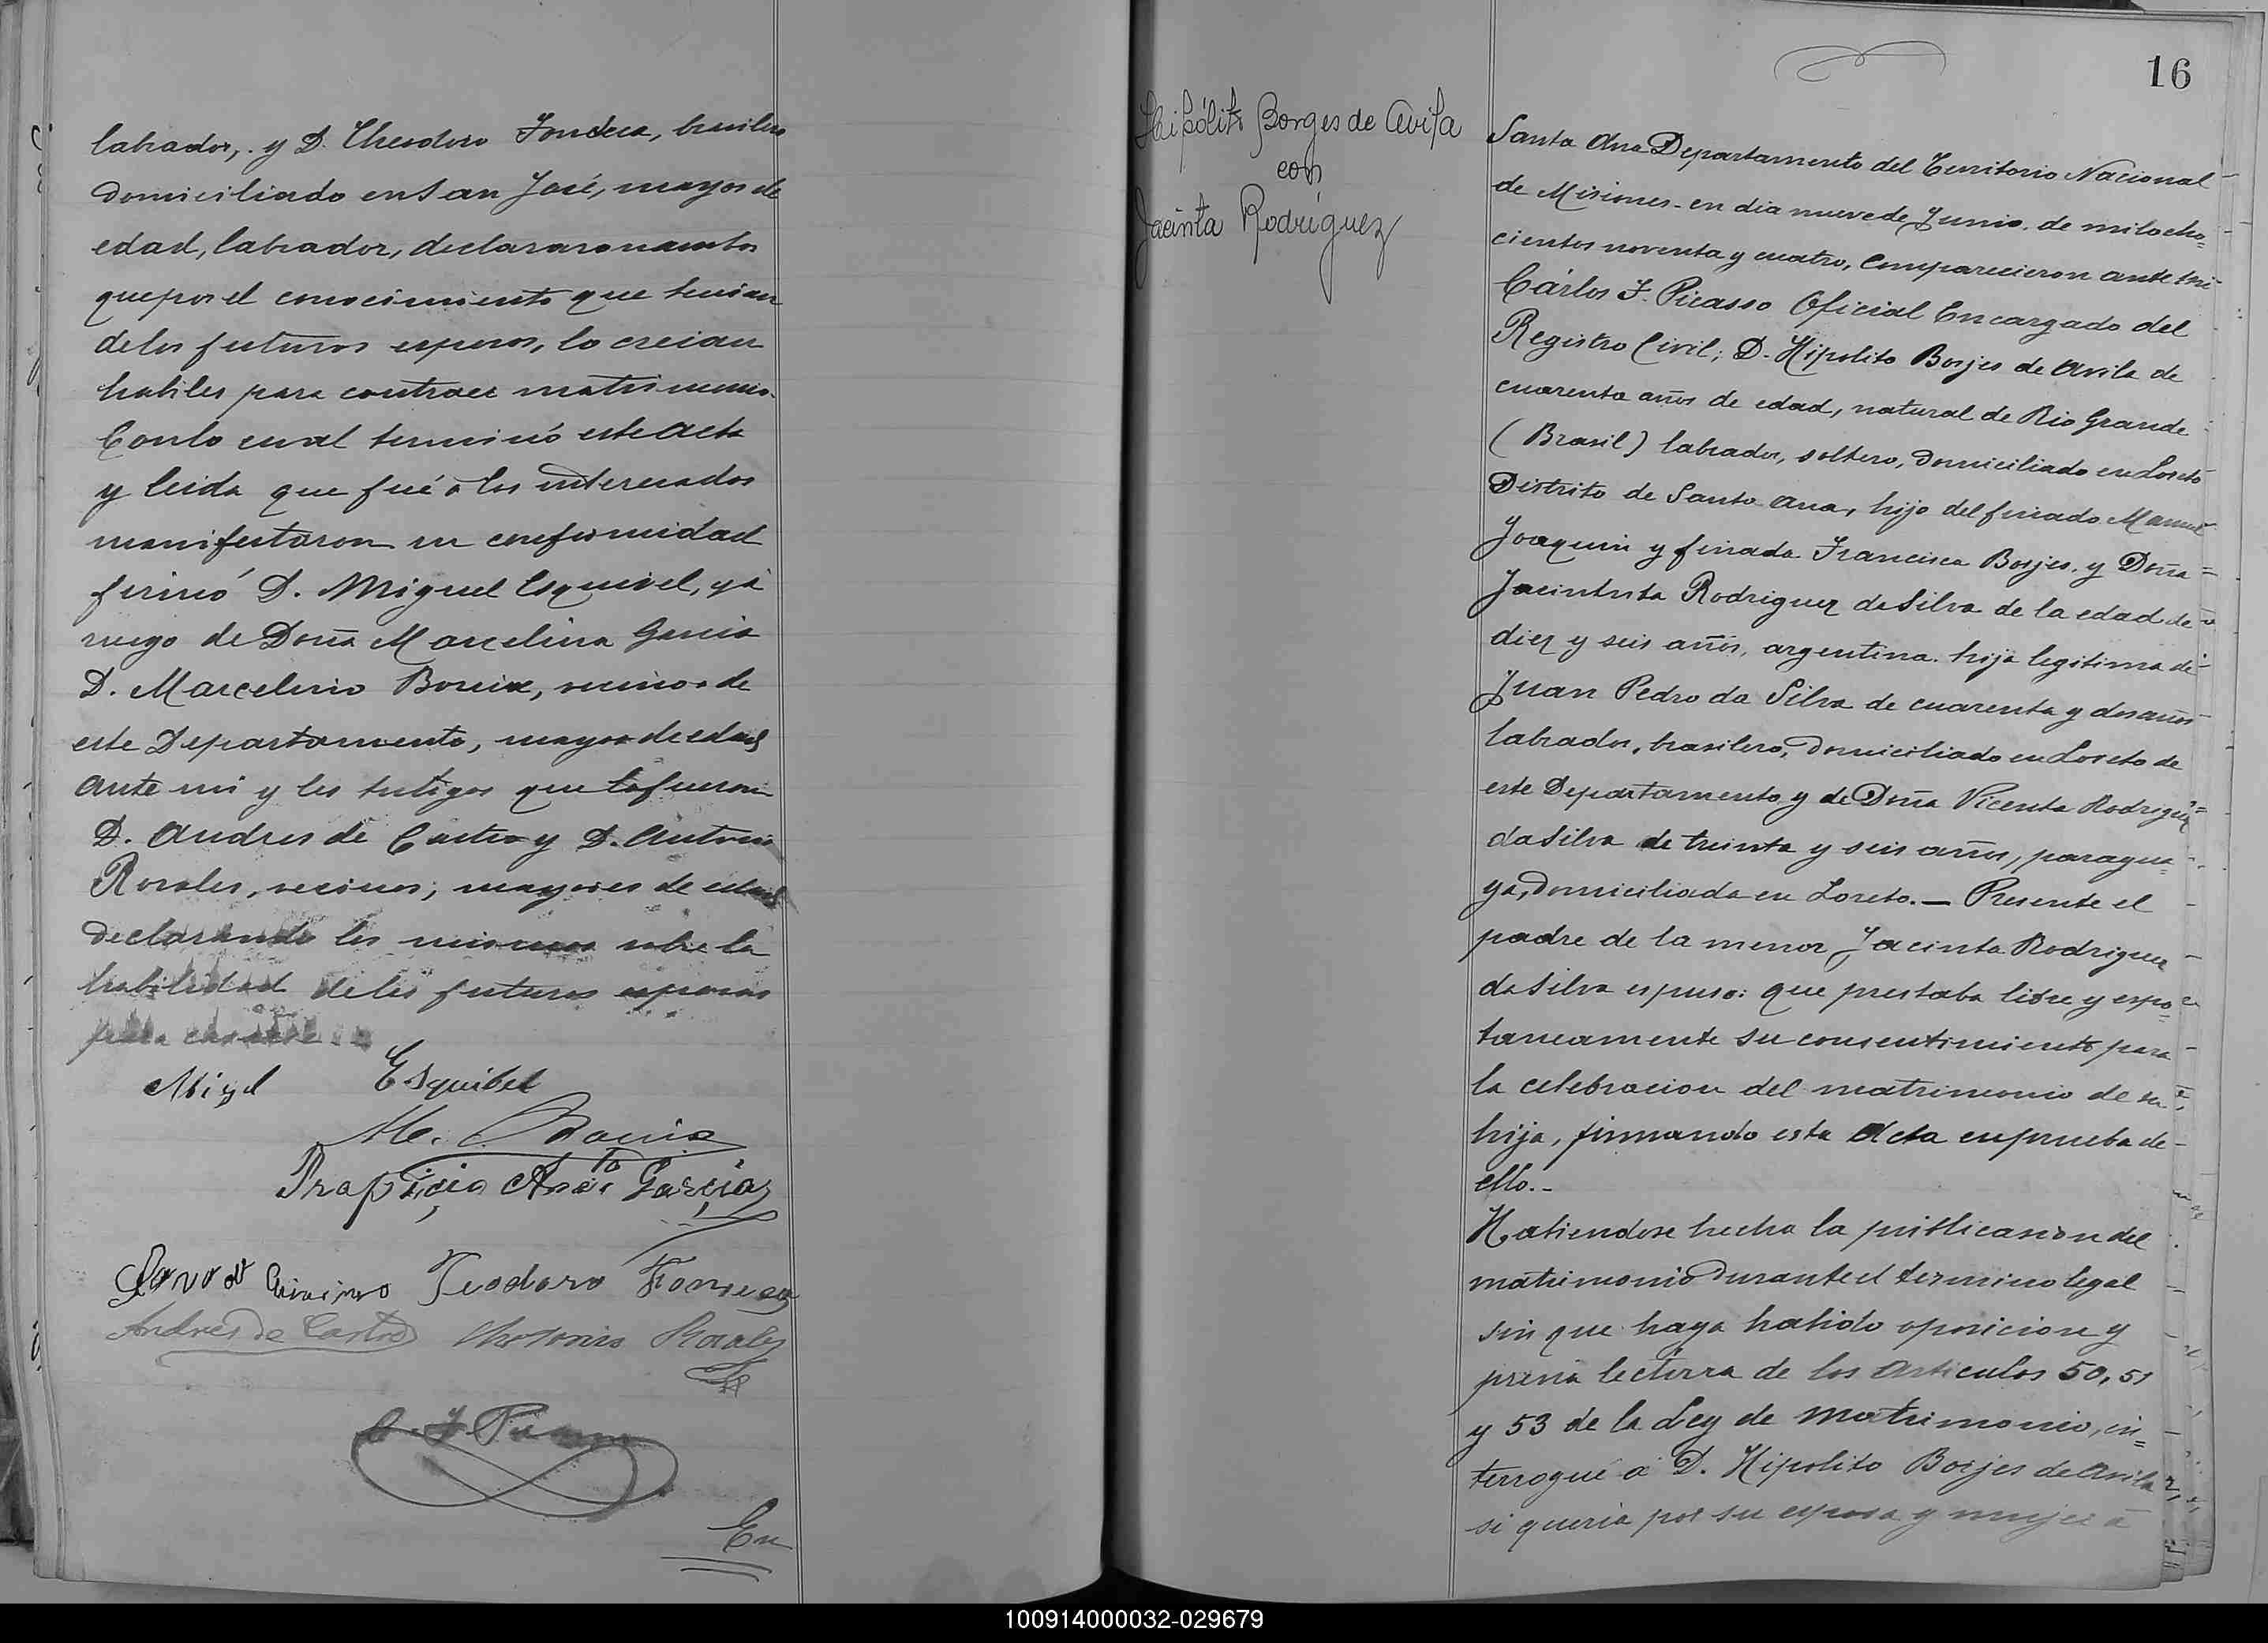 labrador, y D. Theodoro Fonseca, brasilero
domiciliado en San José, mayor de
edad, labrador, declararon ambos
que por el conocimiento que tenian
de los futuros esposos, lo creian
habiles para contraer matrimonio.
Con lo cual terminó este acta
y leida que fué á los interesados
manifestaron su conformidad
firmó D. Miguel Esquivel, y á
ruego de Doña Marcelina Garcia
D. Marcelino Bouix, vecino de
este Departamento, mayor de edad
ante mi y los testigos que lo fueron
D. Andres de Castro y D. Antonio
Rosales, vecinos, mayores de edad
declarando los mismos sobre la
habilidad de los futuros esposos
para casarse
Migel Esquibel
M. 
Garcia
Teodoro Fonseca
Andres de Castro Antonio Rosales
C. F. Picasso
En
16
Hipólito Borges de Avila
con
Jacinta Rodriguez
Santa Ana Departamento del Territorio Nacional
de Misiones en dia nueve de Junio de mil ocho=
cientos noventa y cuatro, Comparecieron ante mi
Cárlos F. Picasso Oficial Encargado del
Registro Civil; D. Hipolito Borjes de Avila de
cuarenta años de edad, natural de Rio Grande
(Brasil) labrador, soltero, domiciliado en Loreto
Distrito de Santa Ana, hijo del finado Manuel
Joaquin y finada Francisca Borjes, y Doña
Jacintnta Rodriguez da Silva de la edad de
diez y seis años, argentina. hija legitima de
Juan Pedro da Silva de cuarenta y dos años
labrador, brasilero, domiciliado en Loreto de
este Departamento y de Doña Vicenta Rodriguez
da Silva de treinta y seis años, paragua=
ya, domiciliada en Loreto. — Presente el
padre de la menor Jacinta Rodriguez
da Silva espuso: que prestaba libre y espo=
taneamente su consentimiento para
la celebracion del matrimonio de su
hija, firmando esta Acta en prueba de
ello.-
Habiendose hecha la publicasion del
matrimonio durante el termino legal
sin que haya habido oposicion y
prévia lectura de los Articulos 50, 51
y 53 de la Ley de Matrimonio, in=
terrogué á D. Hipolito Borjes de Avila
si queria por su esposa y mujer á
100914000032-029679